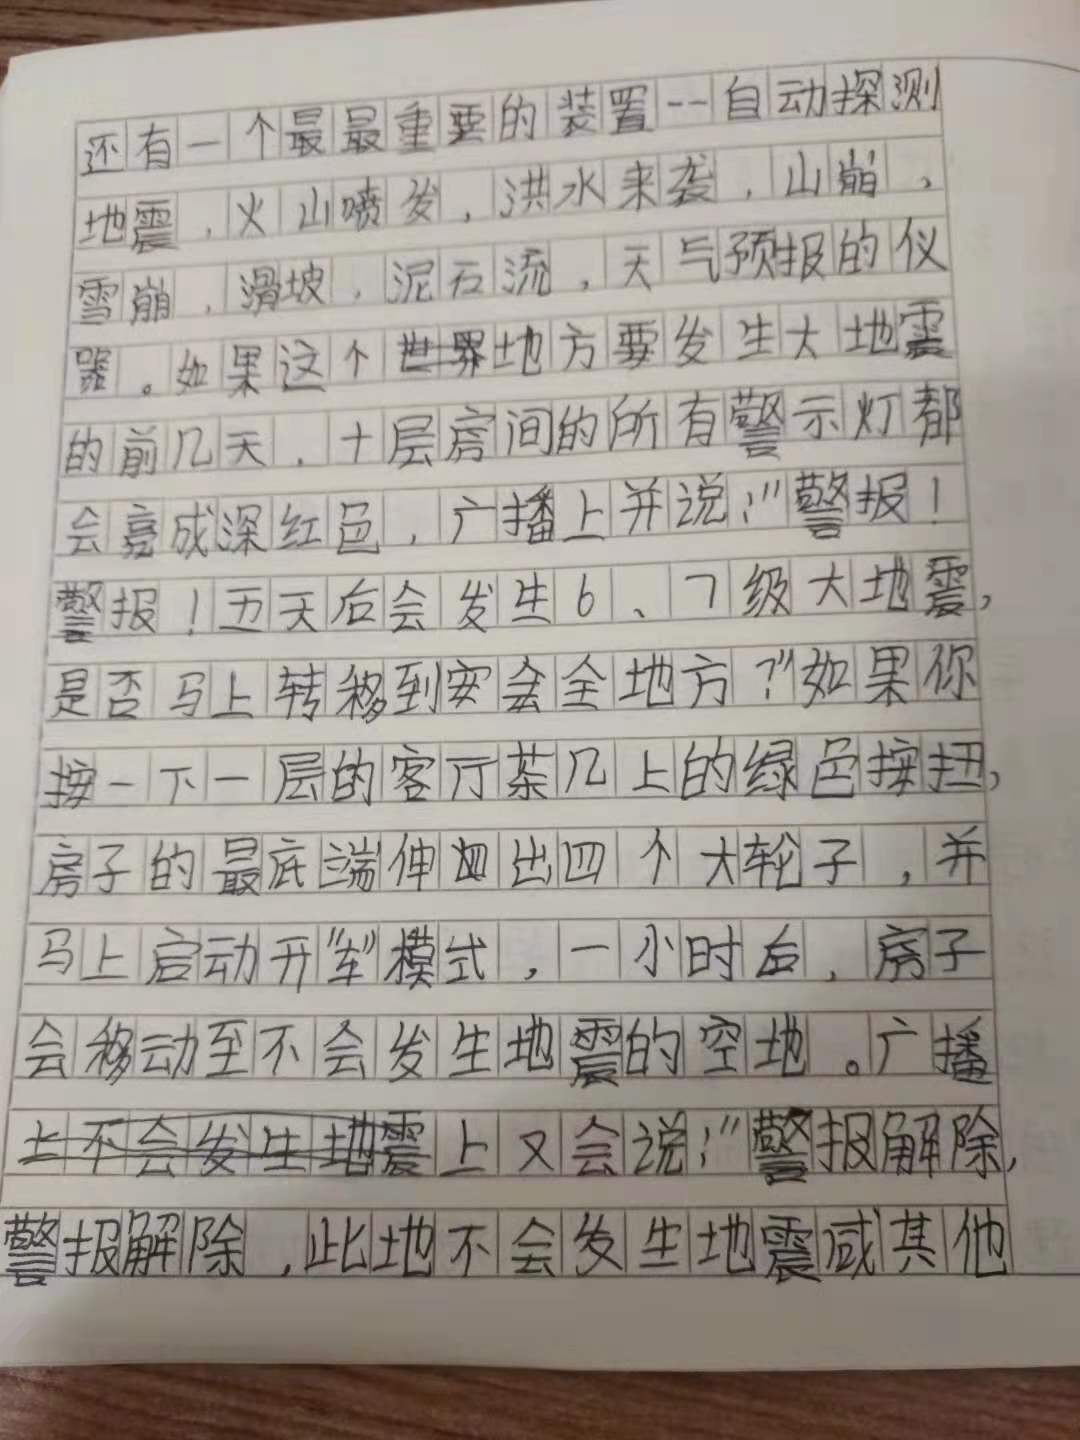 还有一个最最重要的装置--自动探测
地震,火山喷发,洪水来袭,山崩,
雪崩,滑坡,泥石流,天气预报的仪
器。如果这个世界地方要发生大地震
的前几天,十层房间的所有警示灯都
会亮成深红色,广播上并说:"警报!
警报!五天后会发生6、7级大地震,
是否马上转移到安会全地方?"如果你
按一下一层的客厅茶几上的绿色按扭,
房子的最底端伸出四个大轮子,并
马上启动开"车"模式,一小时后,房子
会移动至不会发生地震的空地。广播
上不会发生地震上又会说:"警报解除,
警报解除,此地不会发生地震或其他